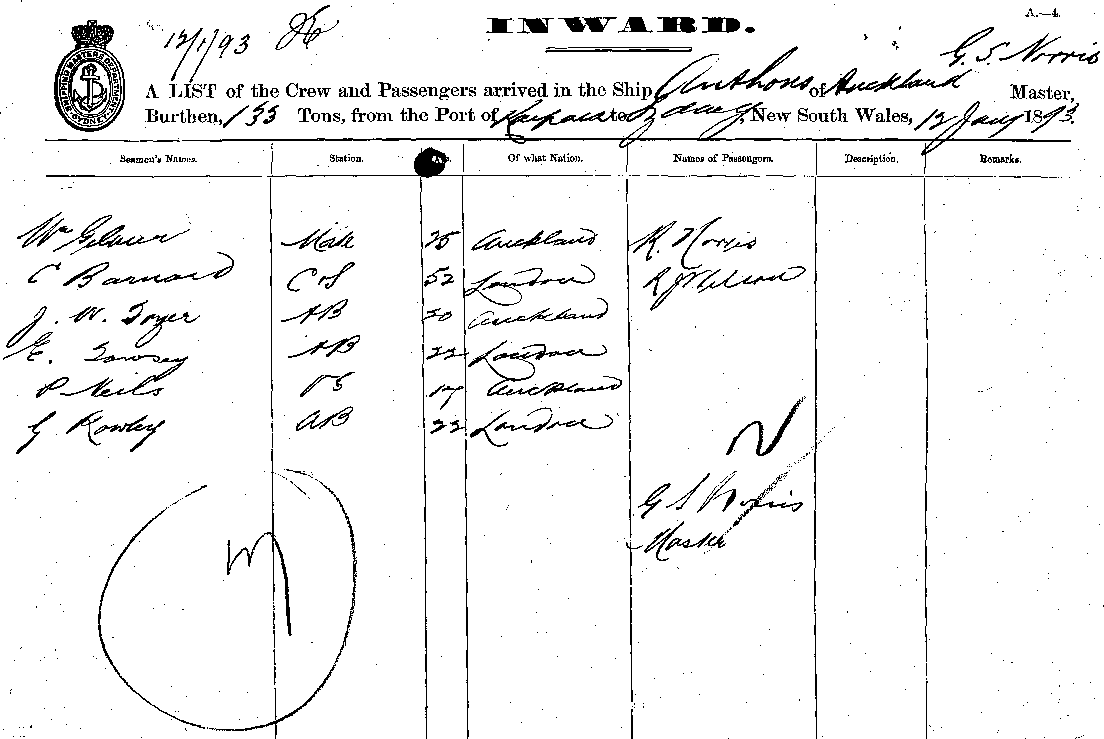 A.—4.
INWARD.
12/1/93
G. S. Norris
A LIST of the Crew and Passengers arrived in the Ship of Auckland Master,
Burthen, 133 Tons, from the Port of Kaipara to Sydney, New South Wales, 12 Jany 1893.
Seamen's Names. Station. Of what Nation. Names of Passengers. Description. Remarks.
Wm Mate 25 Auckland R. Norris
C Barnard C & S 52 London R J Nelson
J. W. AB 20 Auckland
E. AB 22 London
P Neils OS 17 Auckland
G Rowley AB 22 London
G S Norris
Master
SHIPPING MASTERS DEPARTMENT SYDNEY